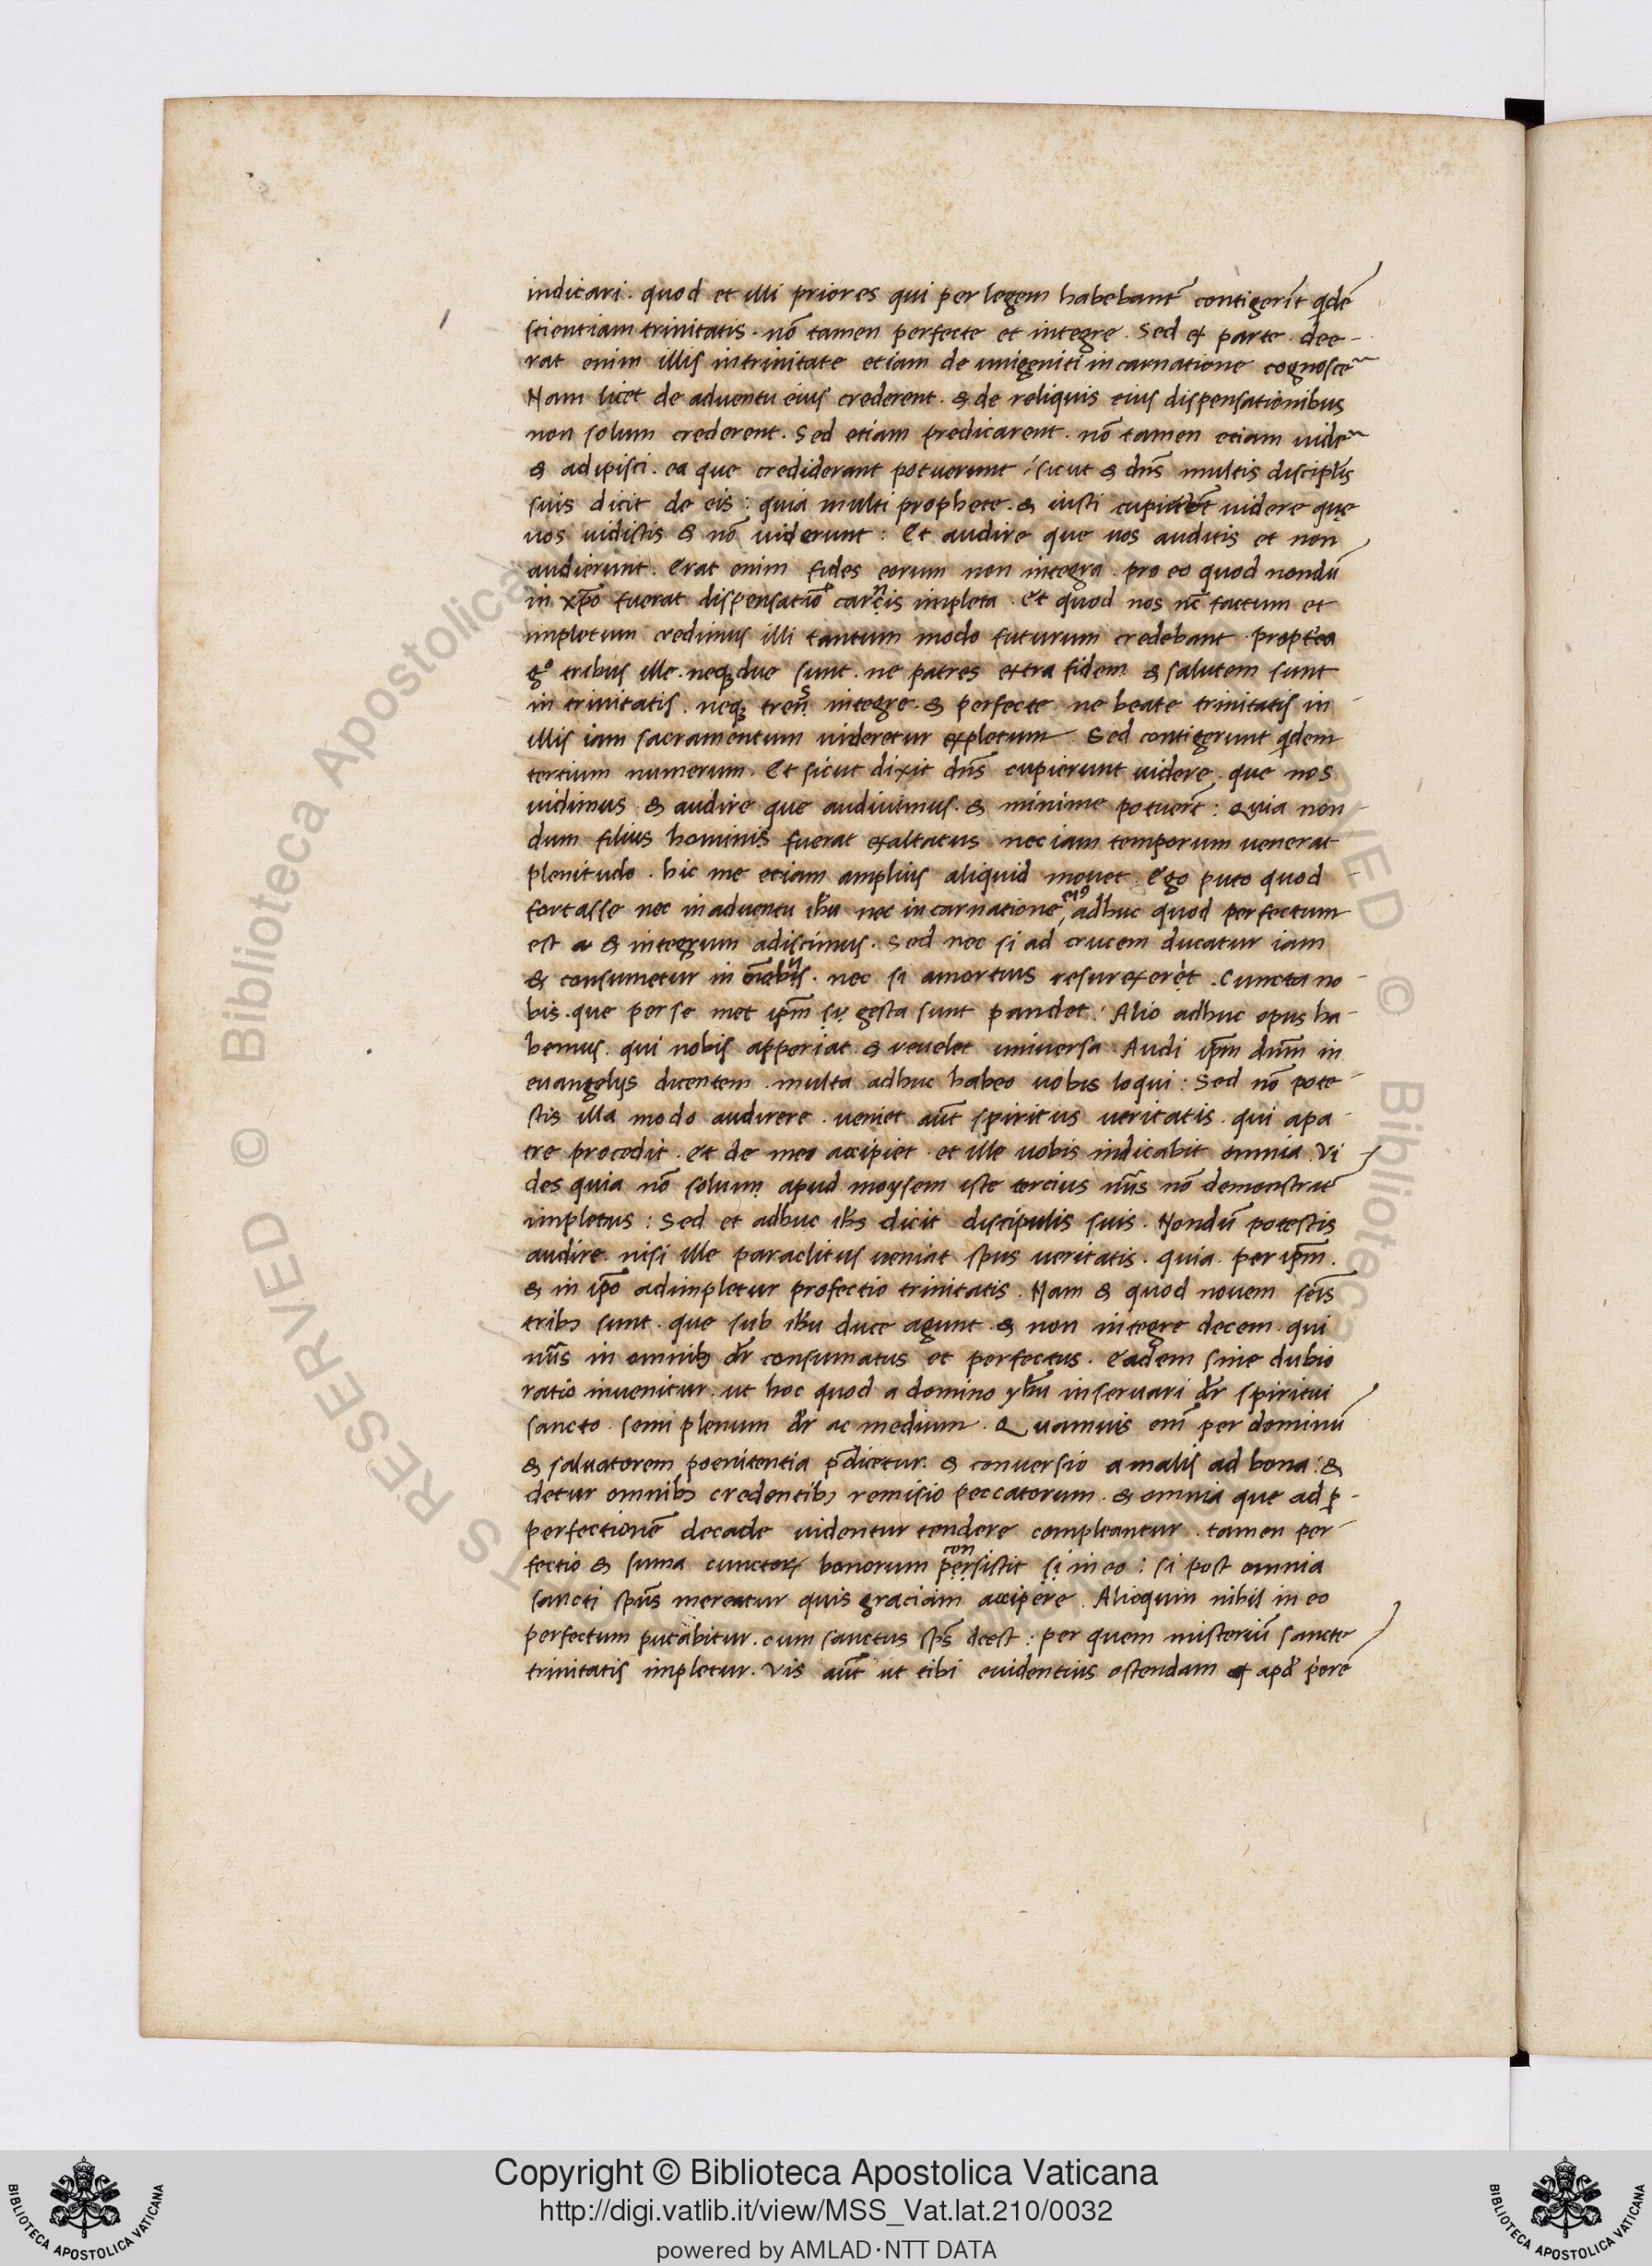 indicari . quod et illi priores qui per legem habebant᷑ contigerit᷑ qdē
scientiam trinitatis . nō tamen perfecte et integre . Sed ex parte . dee-
rat enim illis in trinitate etiam de unigeniti in carnatione cognosce᷑
Nam licet de aduentu eius crederent . & de reliquis eius dispensationibus
non solum crederent . Sed etiam predicarent . nō tamen etiam uide᷑
& adipisci . ea que crediderant potuerunt : sicut & dn̄s multis discipl̄is
suis dicit de eis : quia multi prophete . & iusti videre que
uos uidistis & nō uiderunt : Et audire que uos auditis et non
audierunt . Erat enim fides eorum non integra . pro eo quod nondū
in xp̄o fuerat dispensatio carnis impleta . et quod nos nc̄ factum et
impletum credimus illi tantum modo futurum credebant . propt̄ea
gº tribus ille . neqꝫ due sunt . ne patres extra fidem & salutem sunt
in trinitatis . neqꝫ tres integre . & perfecte ne beate trinitatis in
illis iam sacramentum uideretur expletum . Sed contigerunt qdem
tertium numerum . Et sicut dixit dn̄s cupierunt uidere . que nos
uidimus & audire que audiuimus . & minime potuert̄ : Quia non-
dum filius hominis fuerat exaltatus nec iam temporum uenerat
plenitudo . hic me etiam amplius aliquid mouet . Ego puto quod
fortasse nec in aduentu ih̄u nec in carnatione eiꝰ adhuc quod perfectum
est & integrum adiscimus . Sed nec si ad crucem ducatur iam
& consumetur in nec si amortuus resurexerèt . Cuncta no-
bis . que per se met ip̄m gesta sunt pandet : Alio adhuc opus ha-
bemus . qui nobis apperiat & reuelet uniuersa . Audi ip̄m dn̄m in
euangelijs dicentem . multa adhuc habeo uobis loqui : Sed nō pote-
stis illa modo audirere . ueniet aūt spiritus ueritatis . qui apa-
tre procedit . et de meo accipiet . et ille uobis indicabit omnia . Vi
des quia nō solum apud moysem iste tercius nūs nō demonstrat᷑
impletus : Sed et adhuc ih̄s dicit discipulis suis . Nondū potestis
audire nisi ille paraclitus ueniat spus ueritatis . quia per ip̄m .
& in ip̄o adimpletur profectio trinitatis . Nam & quod nouem sēis
tribꝫ sunt . que sub ih̄u duce agunt . & non integre decem . qui
nūs in omnibꝫ dr̄ consumatus et perfectus . Eadem sine dubio
ratio inuenitur . ut hoc quod a domino yh̄u inseruari dr̄ spiritui
sancto . semi plenum dr̄ ac medium . Quamuis em̄ per dominū
& saluatorem poenitentia p̄dicetur . & conuersio a malis ad bona : &
detur omnibꝫ credentibꝫ remisio peccatorum . & omnia que ad p̱-
perfectionē decade uidentur tendere compleantur . tamen per-
fectio & suma cunctoꝝ bonorum consistit in eo : si post omnia
sancti sp̄us mereatur quis graciam accipere . Alioquin nihil in eo
perfectum putabitur . cum sanctus sp̄s deest : per quem misteriū sancte
trinitatis impletur . Vis aūt ut tibi euidentius ostendam apd̄
Copyright © Biblioteca Apostolica Vaticana
http://digi.vatlib.it/view/MSS_Vat.lat.210/0032
powered by AMLAD·NTT DATA
BIBLIOTECA APOSTOLICA VATICANA
BIBLIOTECA APOSTOLICA VATICANA